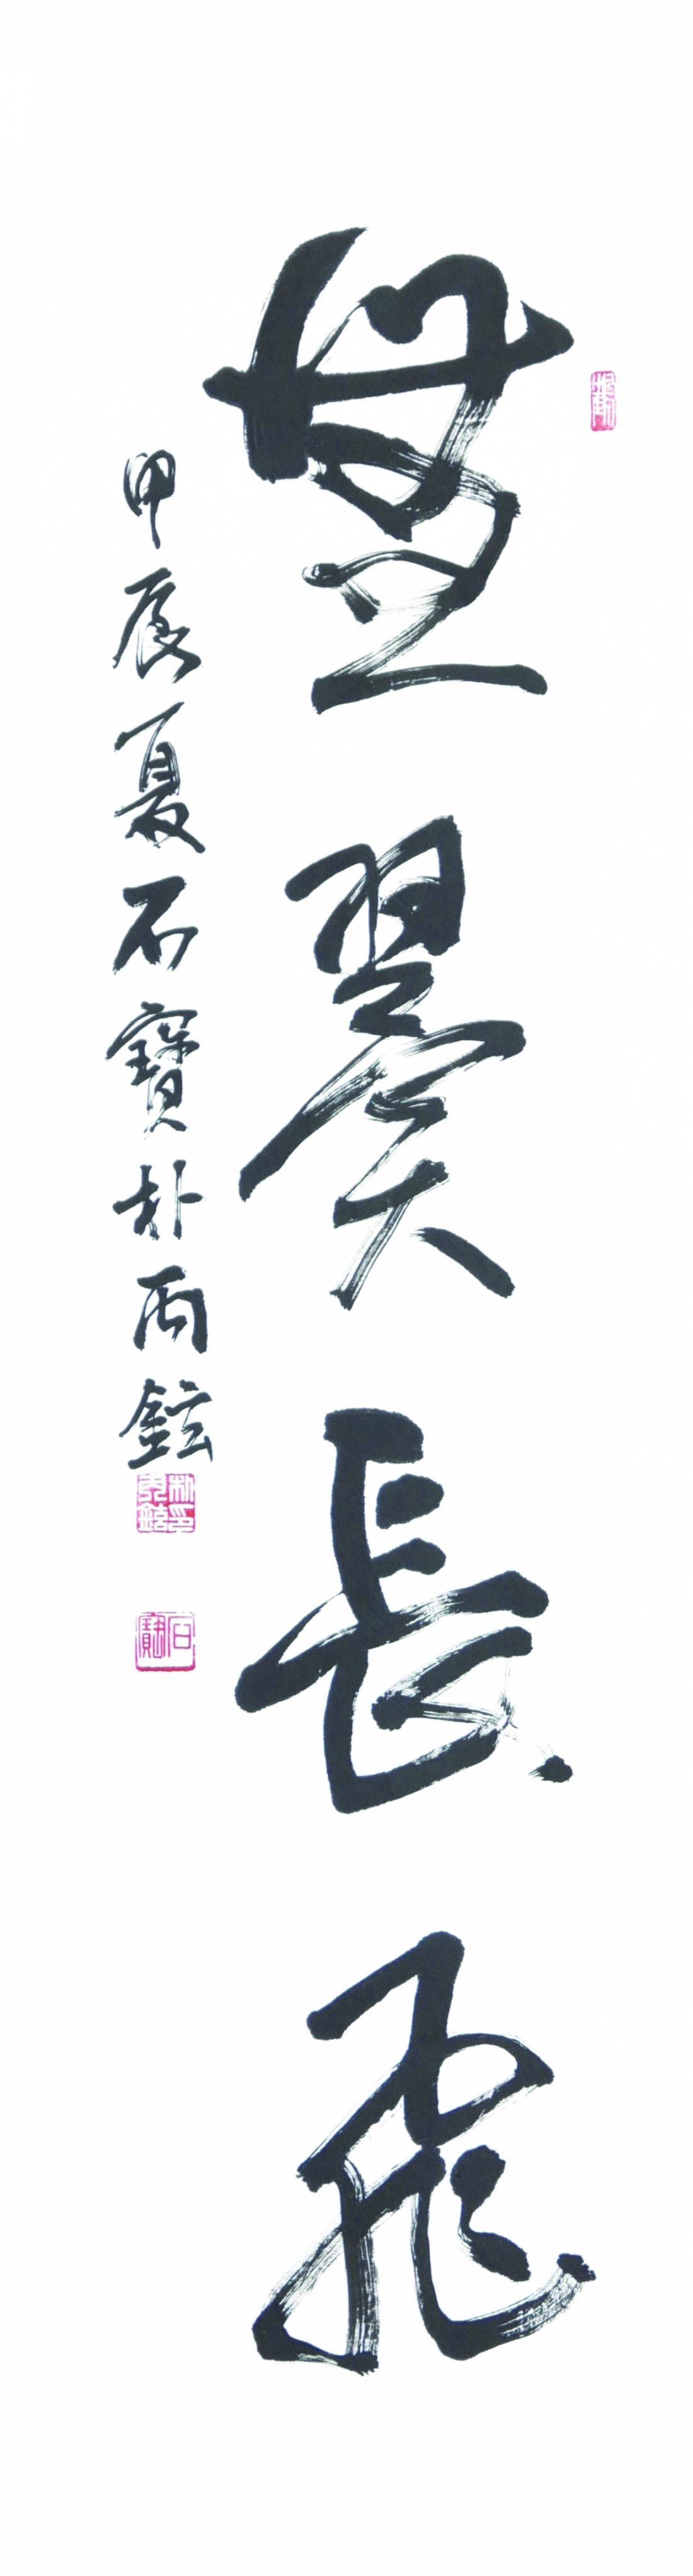 翼長飛
甲辰夏石寶朴丙鉉
石寶